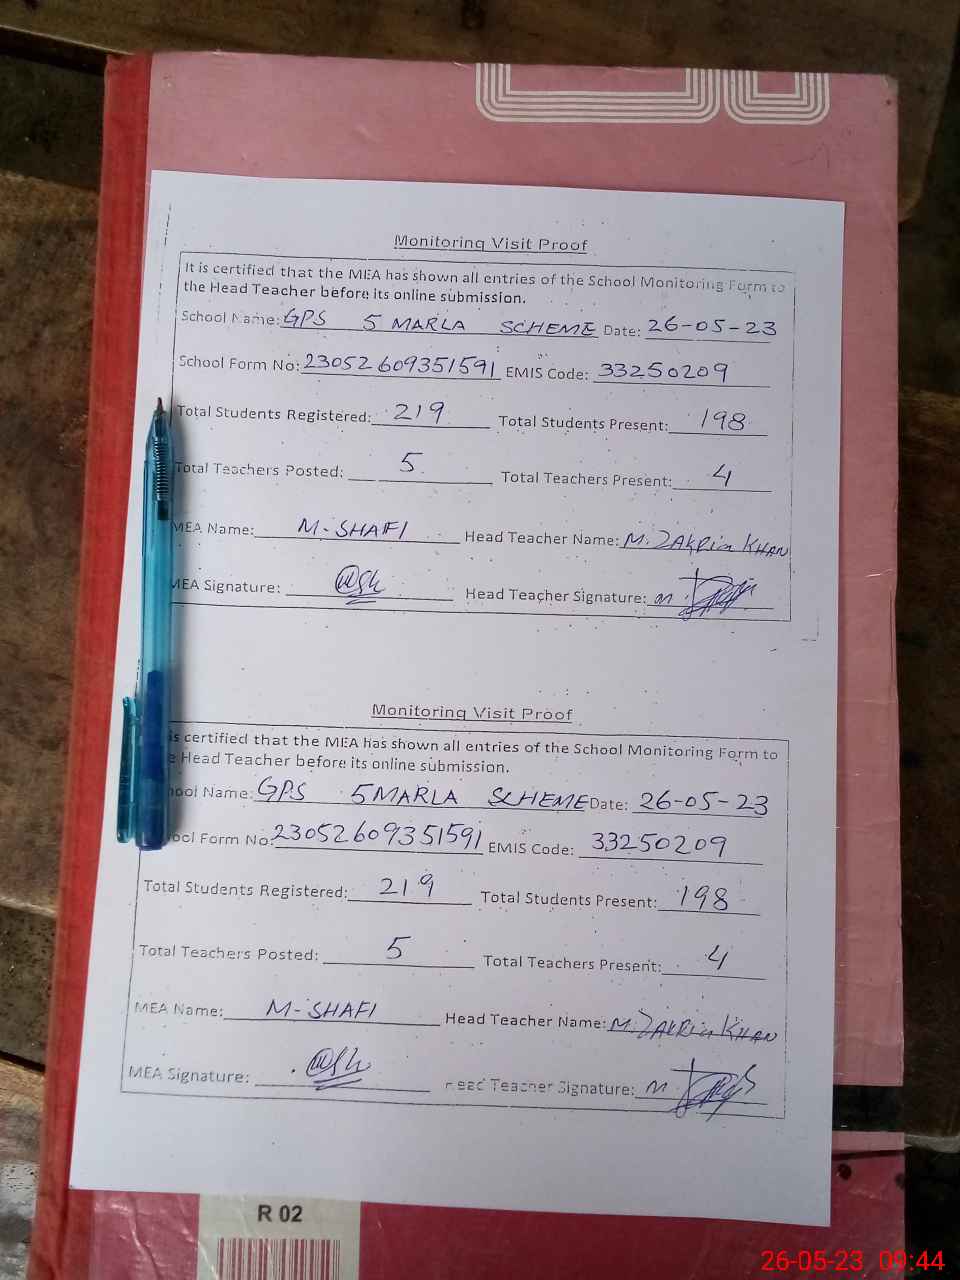 Monitoring Visit Proof
It is certified that the MEA has shown all entries of the School Monitoring Form to
the Head Teacher before its online submission.
School Name: GPS 5 MARLA SCHEME Date: 26-05-23
School Form No: 23052609351591 EMIS Code: 33250209
Total Students Registered: 219 Total Students Present: 198
Total Teachers Posted: 5 Total Teachers Present: 4
MEA Name: M-SHAFI Head Teacher Name: M. ZAKRia KHAN
MEA Signature: Head Teacher Signature:
Monitoring Visit Proof
is certified that the MEA has shown all entries of the School Monitoring Form to
e Head Teacher before its online submission.
ool Name: GPS 5 MARLA SCHEME Date: 26-05-23
ool Form No: 23052609351591 EMIS Code: 33250209
Total Students Registered: 219 Total Students Present: 198
Total Teachers Posted: 5 Total Teachers Present: 4
MEA Name: M-SHAFI Head Teacher Name: M. ZAKRia KHAN
MEA Signature: Head Teacher Signature:
R 02
26-05-23 09:44